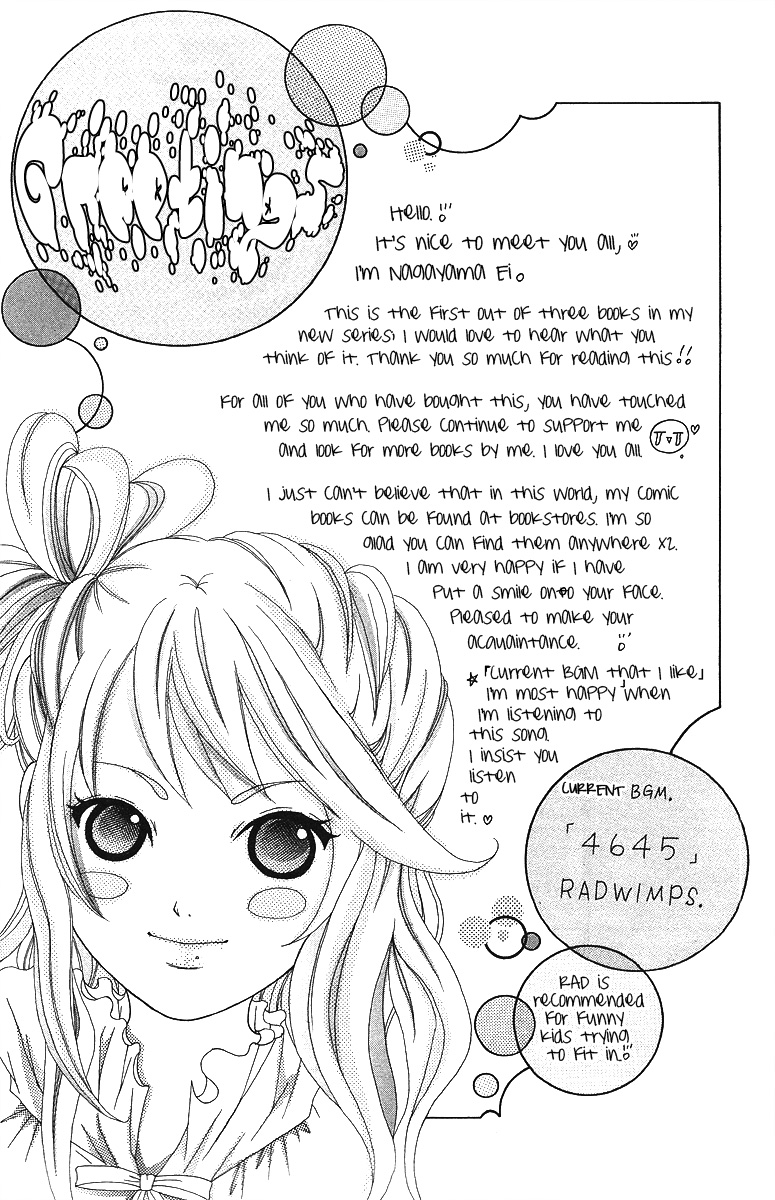 Greetings
Hello.
It's nice to meet you all,
I'm Nagayama Ei.
This is the first out of three books in my
new series; I would love to hear what you
think of it. Thank you so much for reading this!!
For all of you who have bought this, you have touched
me so much. Please continue to support me
and look for more books by me. I love you all.
I just can't believe that in this world, my comic
books can be found at bookstores. I'm so
glad you can find them anywhere x2.
I am very happy if I have
put a smile onto your face.
Pleased to make your
acquaintance.
☆「Current BGM that I like」
I'm most happy when
I'm listening to
this song.
I insist you
listen
to
it. ♡
CURRENT BGM.
「4645」
RADWIMPS.
RAD is
recommended
for funny
kids trying
to fit in.